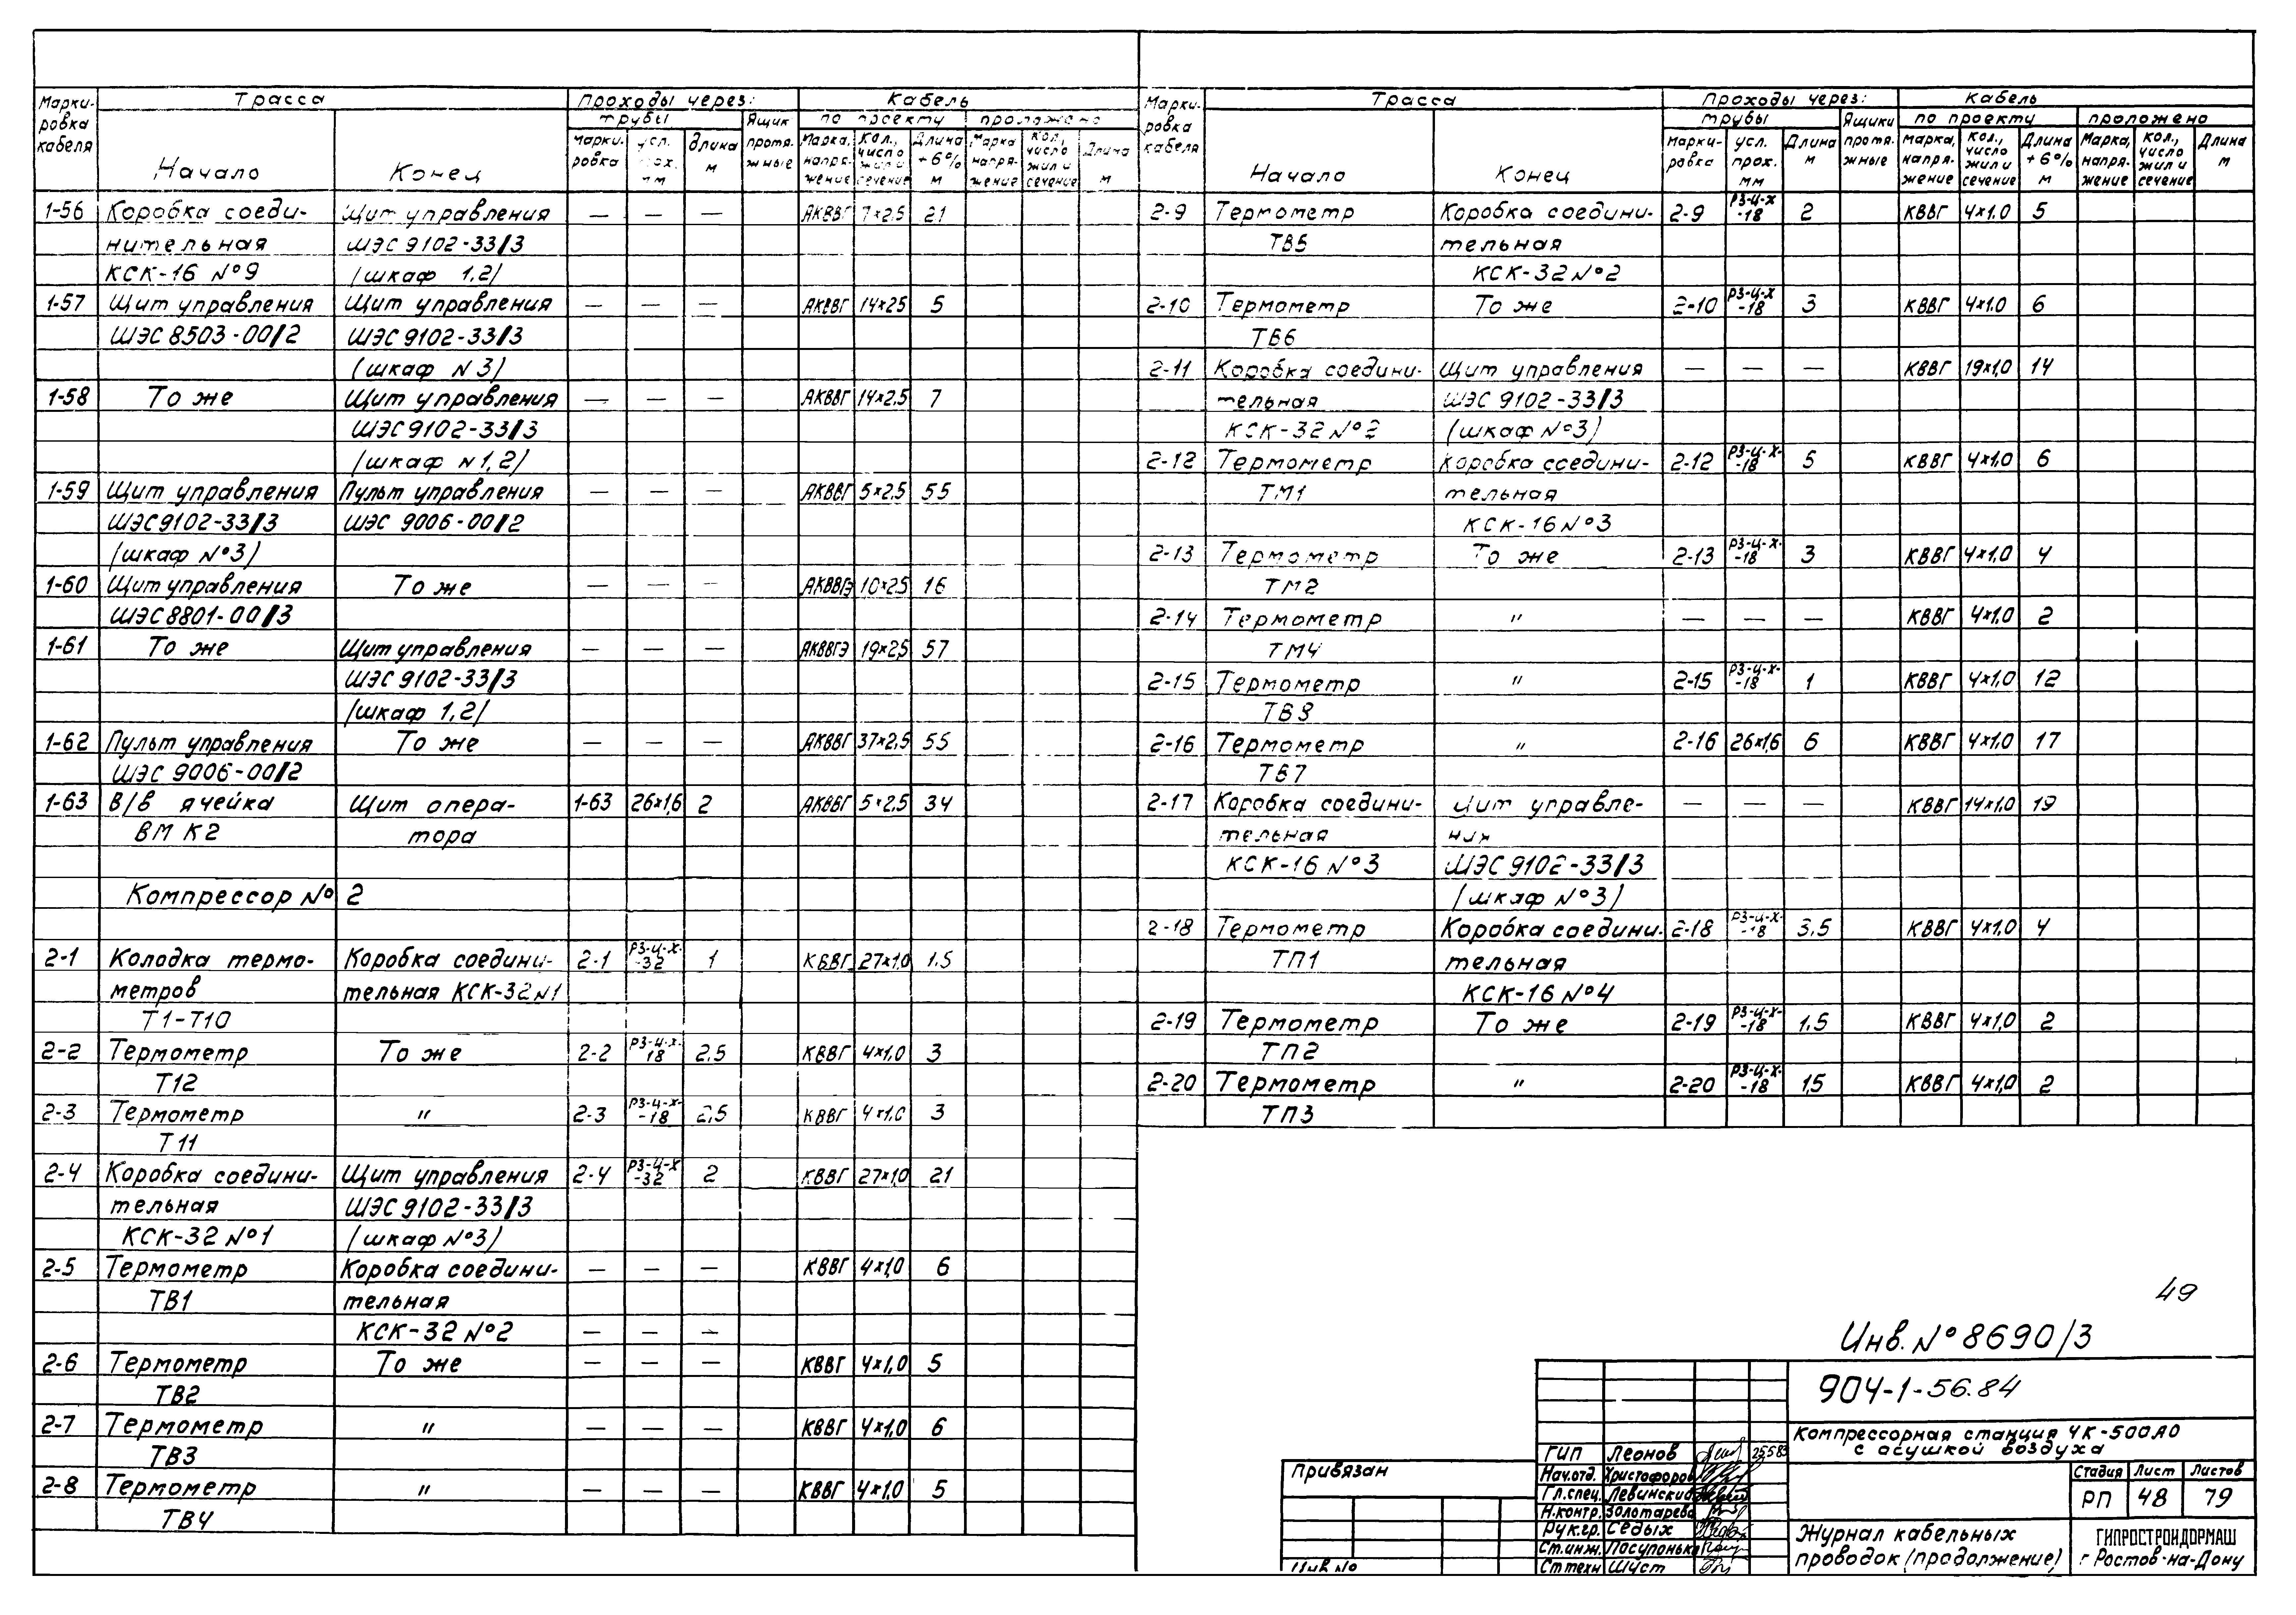 Марки-ровка кабеля | Трасса | Проходы через: | Кабель
трубы | Ящик протя-жные | по проекту | проложено
Начало | Конец | марки-ровка | усл. мм | длина м | Марка, напря-жение | Кол., число жил и сечение | Длина +6% м | Марка напря-жение | Кол., число жил и сечение | Длина м
1-56 | Коробка соеди- | Щит управления | — | — | — | АКВВГ | 7×2,5 | 21
нительная | ШЭС 9102-33/3
КСК-16 №9 | (шкаф 1,2)
1-57 | Щит управления | Щит управления | — | — | — | АКВВГ | 14×25 | 5
ШЭС 8503-00/2 | ШЭС 9102-33/3
(шкаф N3)
1-58 | То же | Щит управления | — | — | — | АКВВГ | 14×2,5 | 7
ШЭС 9102-33/3
(шкаф N1,2)
1-59 | Щит управления | Пульт управления | — | — | — | АКВВГ | 5×2,5 | 55
ШЭС 9102-33/3 | ШЭС 9006-00/2
(шкаф №3)
1-60 | Щит управления | То же | — | — | — | АКВВГЭ | 10×25 | 16
ШЭС 8801-00/3
1-61 | То же | Щит управления | — | — | — | АКВВГЭ | 19×2,5 | 57
ШЭС 9102-33/3
(шкаф 1,2)
1-62 | Пульт управления | То же | — | — | — | АКВВГ | 37×2,5 | 55
ШЭС 9006-00/2
1-63 | В/в ячейка | Щит опера- | 1-63 | 26×1,6 | 2 | АКВВГ | 5×2,5 | 34
ВМ К2 | тора
Компрессор № 2
2-1 | Колодка термо- | Коробка соедини- | 2-1 | РЗ-Ц-Х--32 | 1 | КВВГ | 27×1,0 | 1.5
метров | тельная КСК-32N1
Т1-Т10
2-2 | Термометр | То же | 2-2 | РЗ-Ц-Х-18 | 2,5 | КВВГ | 4×1,0 | 3
Т12
2-3 | Термометр | " | 2-3 | РЗ-Ц-Х--18 | 2,5 | КВВГ | 4×1,0 | 3
Т11
2-4 | Коробка соедини- | Щит управления | 2-4 | РЗ-Ц-Х-32 | 2 | КВВГ | 27×1,0 | 21
тельная | ШЭС 9102-33/3
КСК-32 №1 | (шкаф №3)
2-5 | Термометр | Коробка соедини- | — | — | — | КВВГ | 4×1,0 | 6
ТВ1 | тельная
КСК-32 №2 | — | — | —
2-6 | Термометр | То же | — | — | — | КВВГ | 4×1,0 | 5
ТВ2
2-7 | Термометр | " | — | — | — | КВВГ | 4×1,0 | 6
ТВ3
2-8 | Термометр | " | — | — | — | КВВГ | 4×1,0 | 5
ТВ4
Марки-ровка кабеля | Трасса | Проходы через: | Кабель
трубы | Ящики протя-жные | по проекту | проложено
Начало | Конец | марки-ровка | усл. прох. мм | Длина м | Марка, напря-жение | Кол., число жил и сечение | Длина +6% м | Марка, напря-жение | Кол., число жил и сечение | Длина м
2-9 | Термометр | Коробка соедини- | 2-9 | РЗ-Ц-Х-18 | 2 | КВВГ | 4×1.0 | 5
ТВ5 | тельная
КСК-32 №2
2-10 | Термометр | То же | 2-10 | РЗ-Ц-Х-18 | 3 | КВВГ | 4×1.0 | 6
ТВ6
2-11 | Коробка соедини- | Щит управления | — | — | — | КВВГ | 19×1,0 | 14
тельная | ШЭС 9102-33/3
КСК-32 №2 | (шкаф №3)
2-12 | Термометр | Коробка соедини- | 2-12 | РЗ-Ц-Х--18 | 5 | КВВГ | 4×1,0 | 6
ТМ1 | тельная
КСК-16 №3
2-13 | Термометр | То же | 2-13 | РЗ-Ц-Х--18 | 3 | КВВГ | 4×1,0 | 4
ТМ2
2-14 | Термометр | " | — | — | — | КВВГ | 4×1,0 | 2
ТМ4
2-15 | Термометр | " | 2-15 | РЗ-Ц-Х--18 | 1 | КВВГ | 4×1,0 | 12
ТВ8
2-16 | Термометр | " | 2-16 | 26×1,6 | 6 | КВВГ | 4×1,0 | 17
ТВ7
2-17 | Коробка соедини- | Щит управле- | — | — | — | КВВГ | 14×1,0 | 19
тельная | ния
КСК-16 №3 | ШЭС 9102-33/3
(шкаф №3)
2-18 | Термометр | Коробка соедини- | 2-18 | РЗ-Ц-Х--18 | 3.5 | КВВГ | 4×1,0 | 4
ТП1 | тельная
КСК-16 №4
2-19 | Термометр | То же | 2-19 | РЗ-Ц-Х--18 | 1.5 | КВВГ | 4×1,0 | 2
ТП2
2-20 | Термометр | " | 2-20 | РЗ-Ц-Х--18 | 1,5 | КВВГ | 4×1,0 | 2
ТП3
49
Инв. № 8690/3
904-1-56.84
Компрессорная станция 4К-500А0
с осушкой воздуха
Привязан
Инв №
ГИП Леонов 25.5.83
Нач.отд. Христофоров
Гл.спец. Левинский
Н.контр. Золотарева
Рук.гр. Седых
Ст.инж. Пасупонько
Ст техн Шуст
Стадия | Лист | Листов
РП | 48 | 79
Журнал кабельных
проводок (продолжение)
ГИПРОСТРОЙДОРМАШ
г Ростов-на-Дону